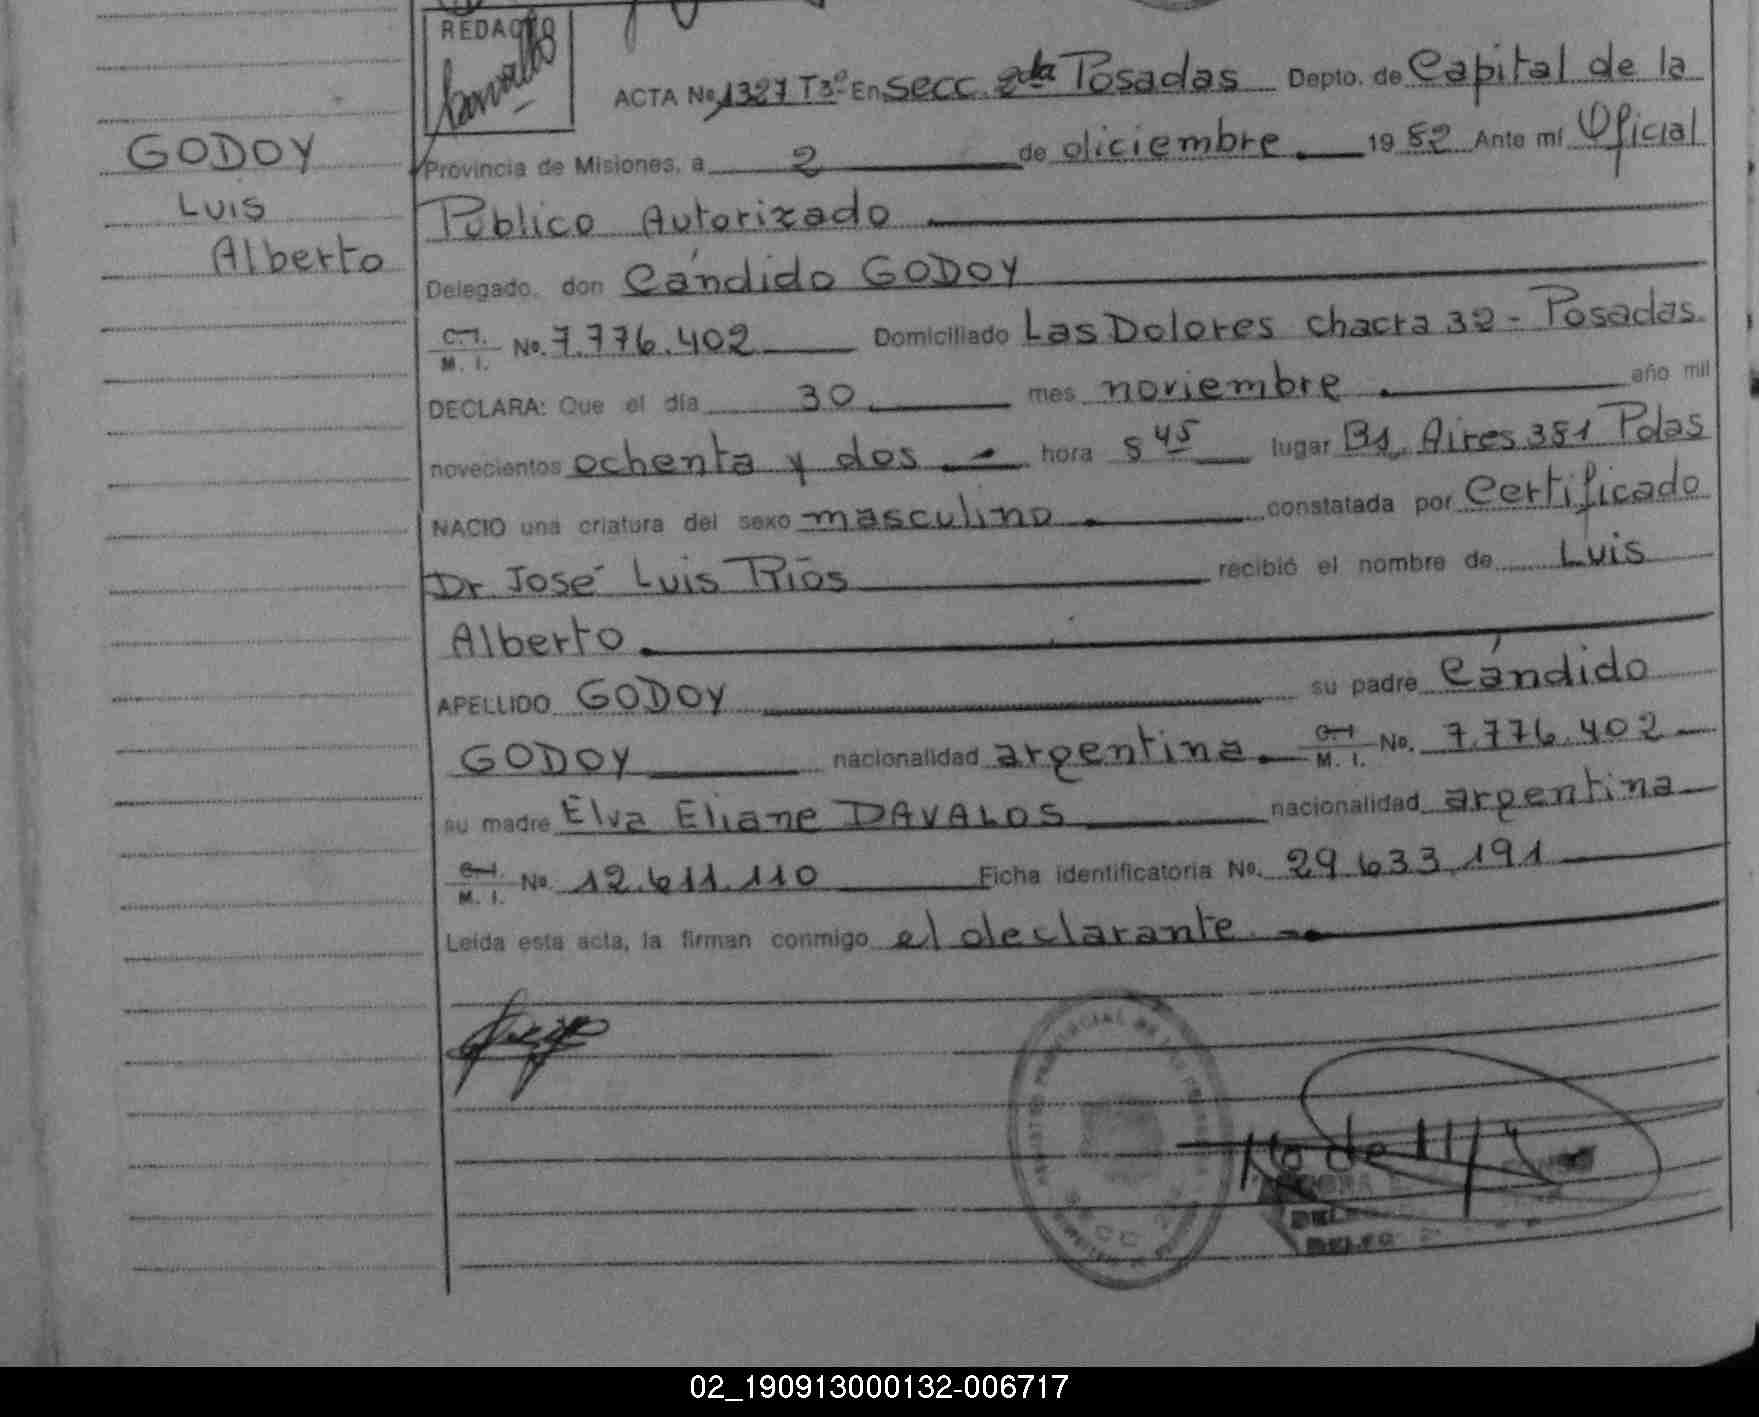 REDACTO
ACTA No. 1327 T3º En secc. 2da Posadas Depto. de Capital de la
GODOY
Provincia de Misiones, a 2 de diciembre 1982 Ante mí Oficial
Luis
Público Autorizado
Alberto
Delegado, don Cándido GODOY
C.I. M. I. No. 7.776.402 Domiciliado Las Dolores chacra 32 - Posadas.
DECLARA: Que el día 30 mes noviembre año mil
novecientos ochenta y dos hora 8 45 lugar Bs. Aires 381 Pdas
NACIO una criatura del sexo masculino constatada por Certificado
Dr. José Luis Ríos recibió el nombre de Luis
Alberto
APELLIDO GODOY su padre Cándido
GODOY nacionalidad argentina. C.I. M. I. No. 7.776.402
su madre Elva Eliane DAVALOS nacionalidad argentina
C.I. M. I. No. 12.611.110 Ficha identificatoria No. 29.633.191
Leída esta acta, la firman conmigo el declarante.
02_190913000132-006717